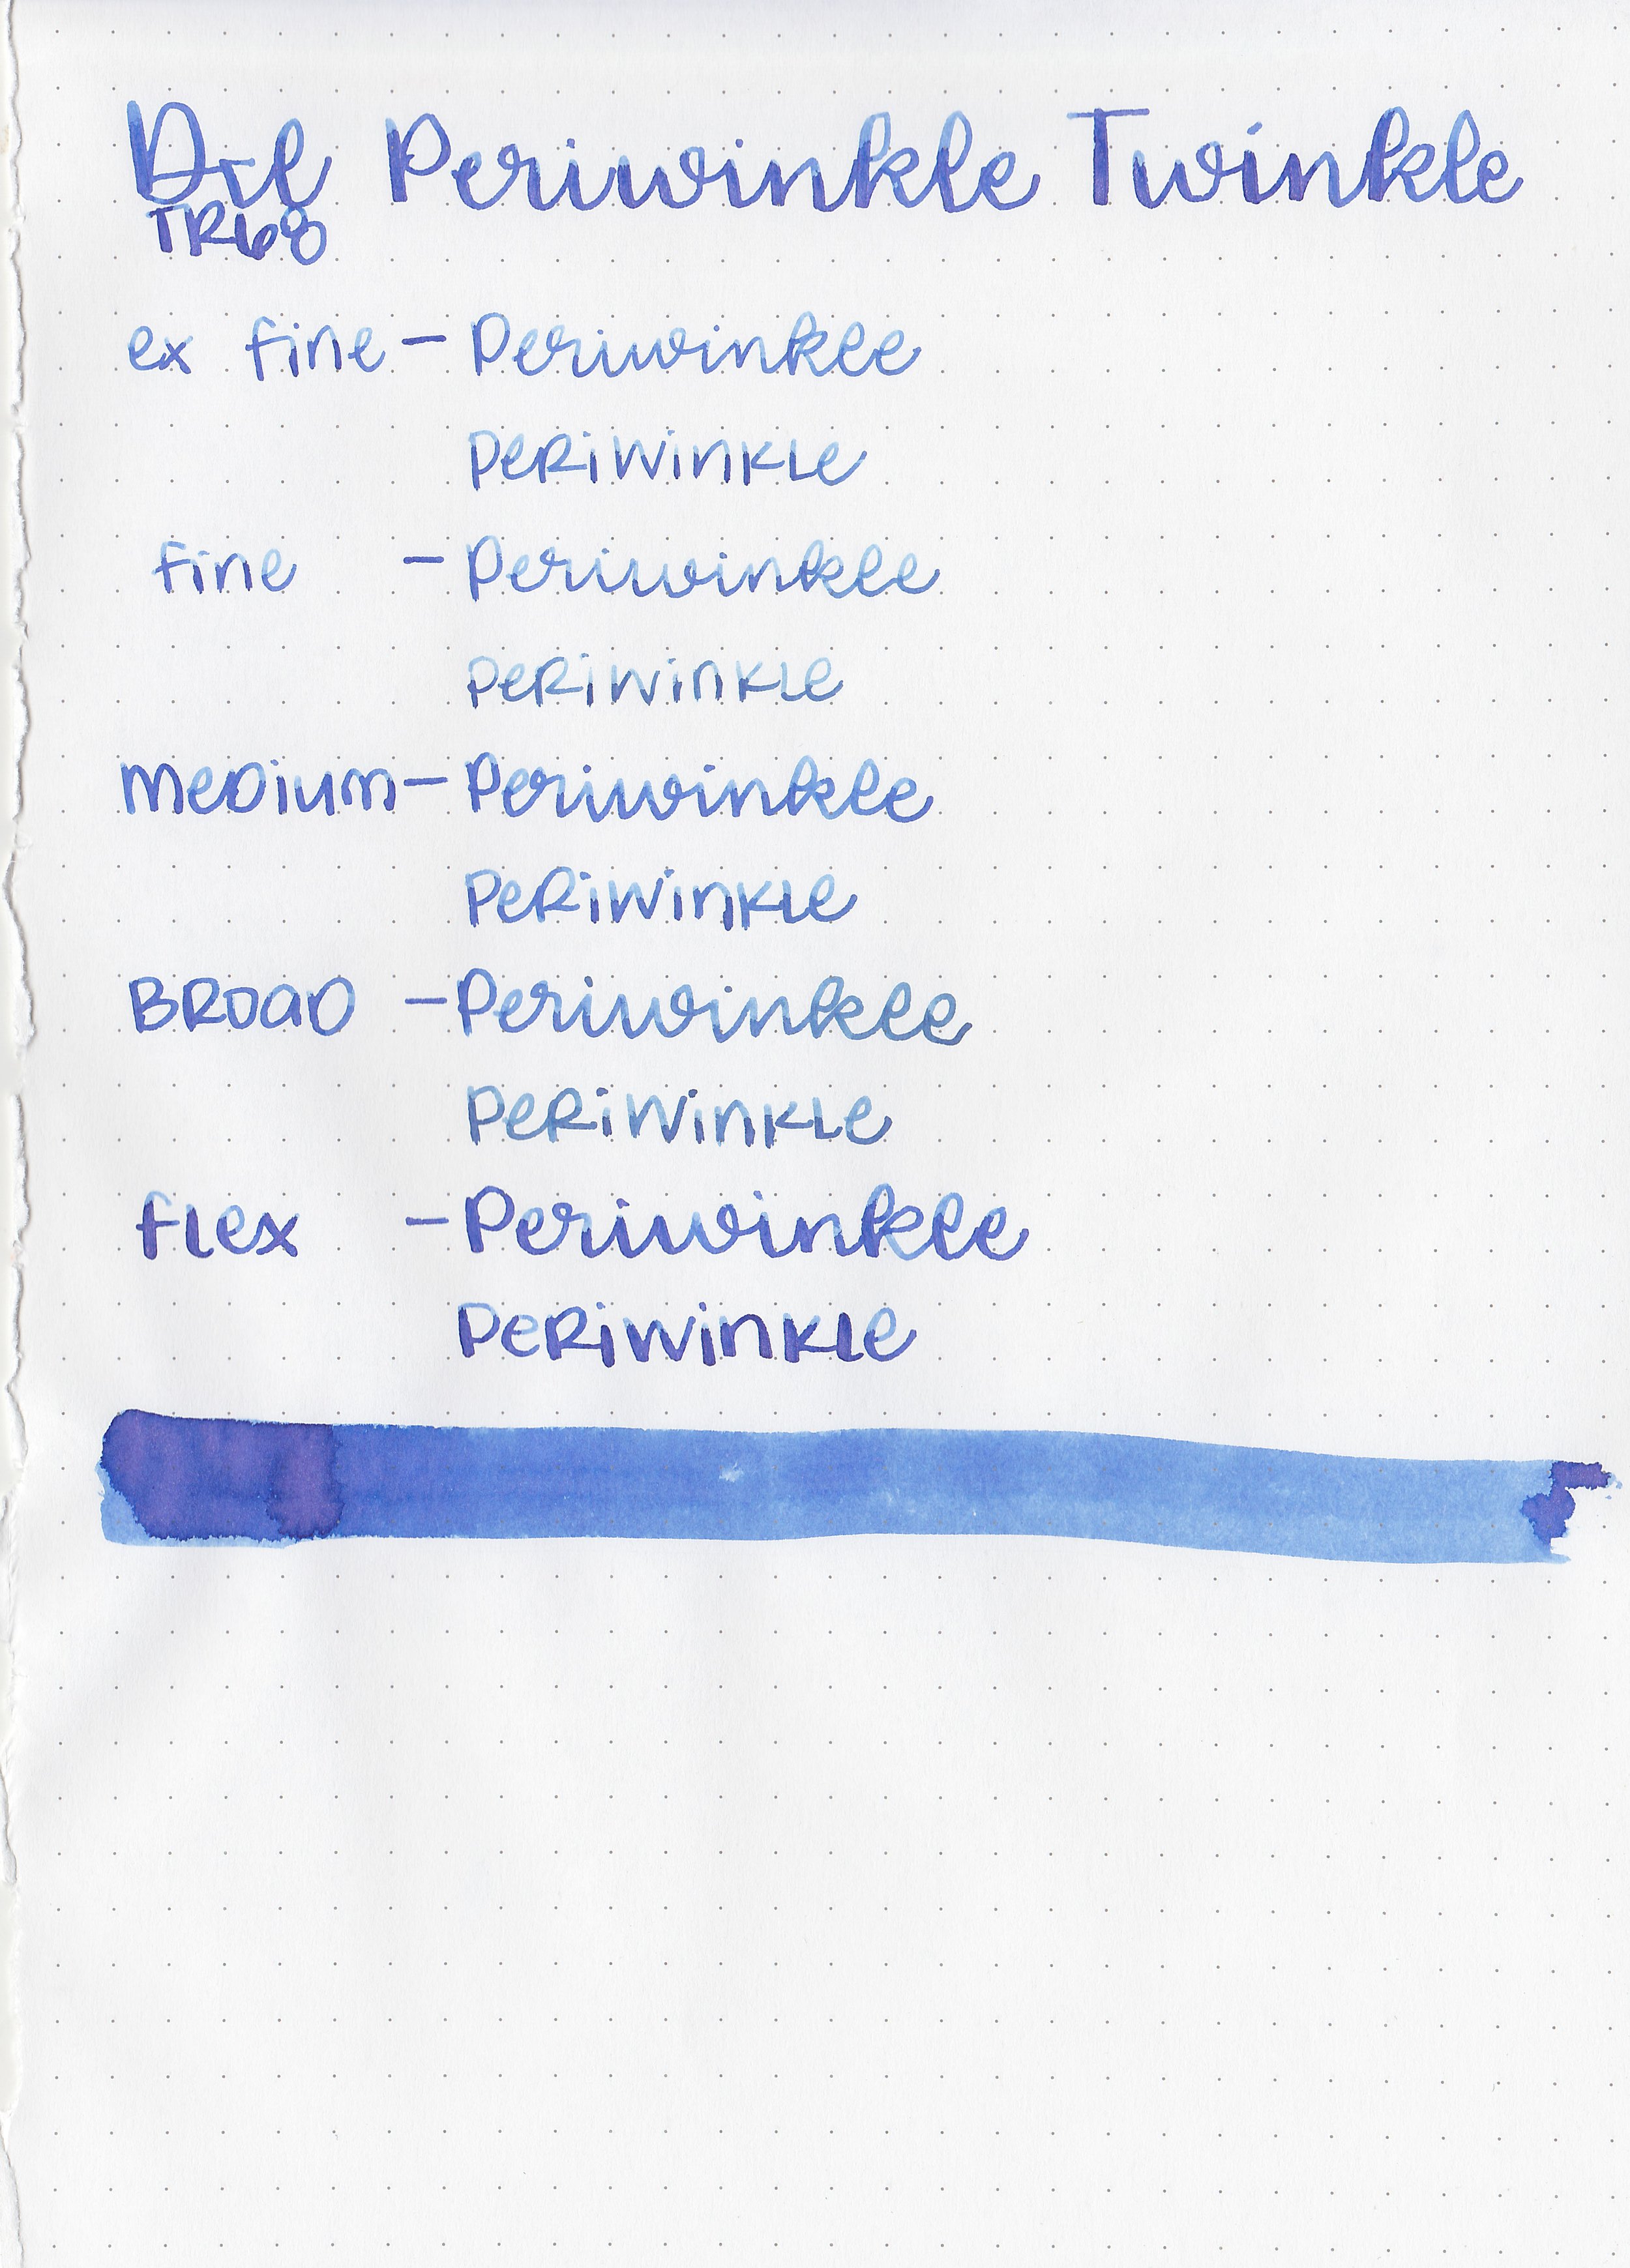 Dil Periwinkle Twinkle
TR68
ex fine - Periwinkle
Periwinkle
fine - Periwinkle
Periwinkle
Medium - Periwinkle
Periwinkle
Broad - Periwinkle
Periwinkle
flex - Periwinkle
Periwinkle